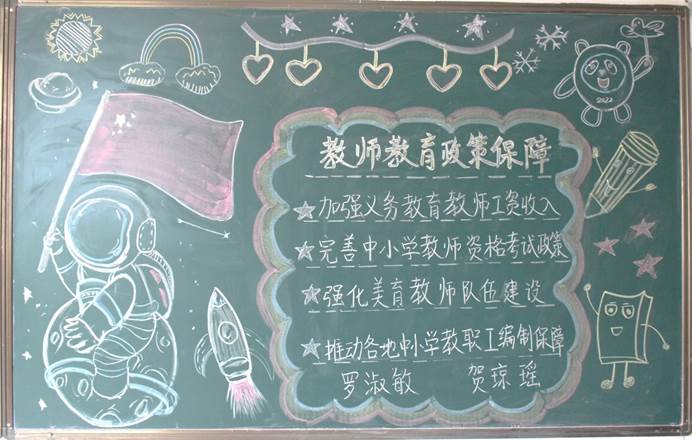 教师教育政策保障
加强义务教育教师工资收入
完善中小学教师资格考试政策
强化美育教师队伍建设
推动各地中小学教职工编制保障
罗淑敏 贺琼瑶
2022